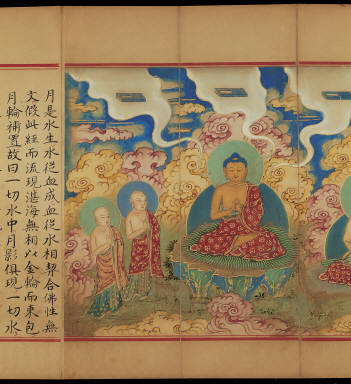 月是水生水從血成血從水相契合佛性無
文假此經而流現湛海無相以金輪而東包
月輪補置故曰一切水中月影俱現一切水